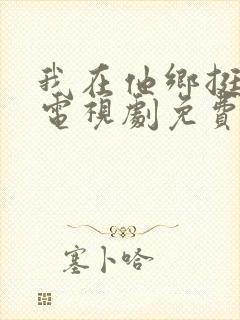 我在他鄉挺
電視劇免費
塞卜哈